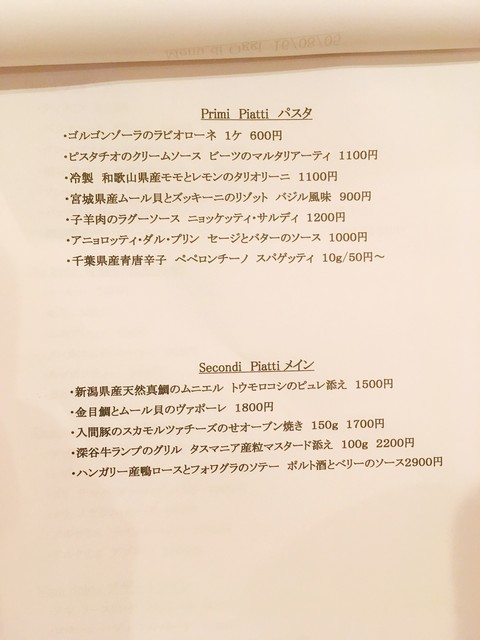 Primi Piatti パスタ
・ゴルゴンゾーラのラビオローネ 1ケ 600円
・ピスタチオのクリームソース ビーツのマルタリアーティ 1100円
・冷製 和歌山県産モモとレモンのタリオリーニ 1100円
・宮城県産ムール貝とズッキーニのリゾット バジル風味 900円
・子羊肉のラグーソース ニョッケッティ・サルディ 1200円
・アニョロッティ・ダル・プリン セージとバターのソース 1000円
・千葉県産青唐辛子 ペペロンチーノ スパゲッティ 10g/50円～
Secondi Piatti メイン
・新潟県産天然真鯛のムニエル トウモロコシのピュレ添え 1500円
・金目鯛とムール貝のヴァポーレ 1800円
・入間豚のスカモルツァチーズのせオーブン焼き 150g 1700円
・深谷牛ランプのグリル タスマニア産粒マスタード添え 100g 2200円
・ハンガリー産鴨ロースとフォワグラのソテー ポルト酒とベリーのソース2900円